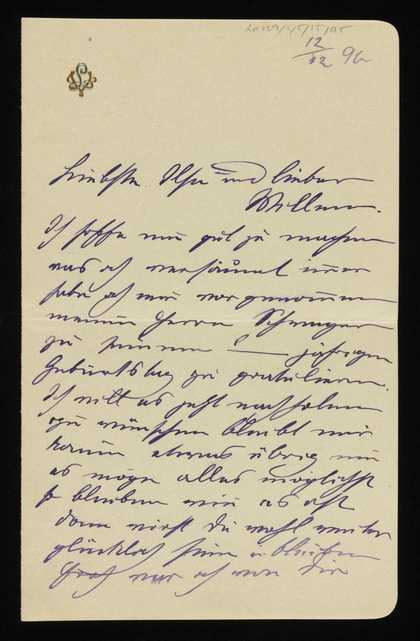 12/12 96
Liebste Ilse und lieber
Willem.
Ich hoffe nun gut zu machen
was ich versäumt immer
habe ich mir vorgenommen
meinem Herrn Schwager
zu seinem — jährigen
Geburtstag zu gratulieren.
Ich will es jetzt nachholen
zu wünschen bleibt mir
kaum etwas übrig nur
es möge alles möglichst
so bleiben wie es ist
dann wirst Du wohl weiter
glücklich sein u. bleiben
was ich von Dir